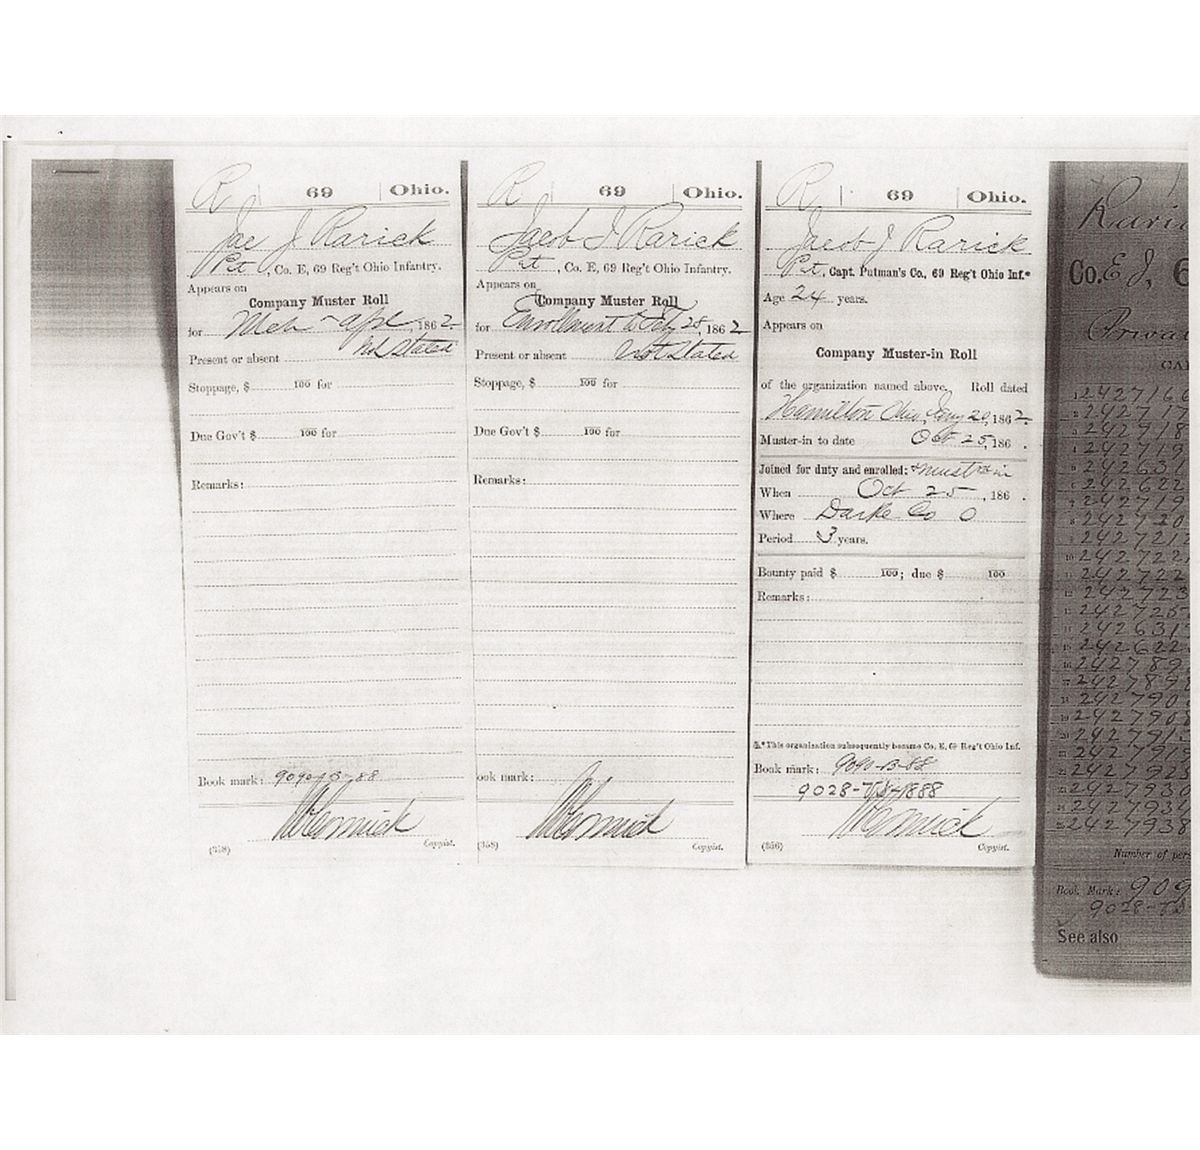 R 69 Ohio.
Jac J Rarick
Pvt, Co. E, 69 Reg't Ohio Infantry.
Appears on
Company Muster Roll
for Mch - Apl, 1862
Present or absent Not Stated
Stoppage, $ 100 for
Due Gov't $ 100 for
Remarks:
Book mark: 9090-B-88
(358) Copyist.
R 69 Ohio.
Jacob J Rarick
Pvt, Co. E, 69 Reg't Ohio Infantry.
Appears on
Company Muster Roll
for Enrollment to Feby 28, 1862
Present or absent Not Stated
Stoppage, $ 100 for
Due Gov't $ 100 for
Remarks:
ook mark:
(358) Copyist.
R 69 Ohio.
Jacob J Rarick
Pvt, Capt. Putman's Co., 69 Reg't Ohio Inf.*
Age 24 years.
Appears on
Company Muster-in Roll
of the organization named above. Roll dated
Hamilton Ohio, Jany 20, 1862.
Muster-in to date Oct 25, 186 .
Joined for duty and enrolled: & must'd in
When Oct 25, 186 .
Where Darke Co O
Period 3 years.
Bounty paid $ 100; due $ 100
Remarks:
*This organization subsequently became Co. E, 69 Reg't Ohio Inf.
Book mark: 9090-B-88
9028-
1888
(356) Copyist.
Raric
Co. E J, 6
Priva
CA
1 2427166
2 242717
3 242718
4 242719
5 242631
6 242622
7 242719
8 242720
9 242721
10 242722
11 242722
12 242723
13 242725
14 242631
15 242622
16 242789
17 242789
18 242790
19 242790
20 242791
21 242791
22 242792
23 242793
24 242793
25 242793
Number of pers
Book Mark: 909
9028-
See also